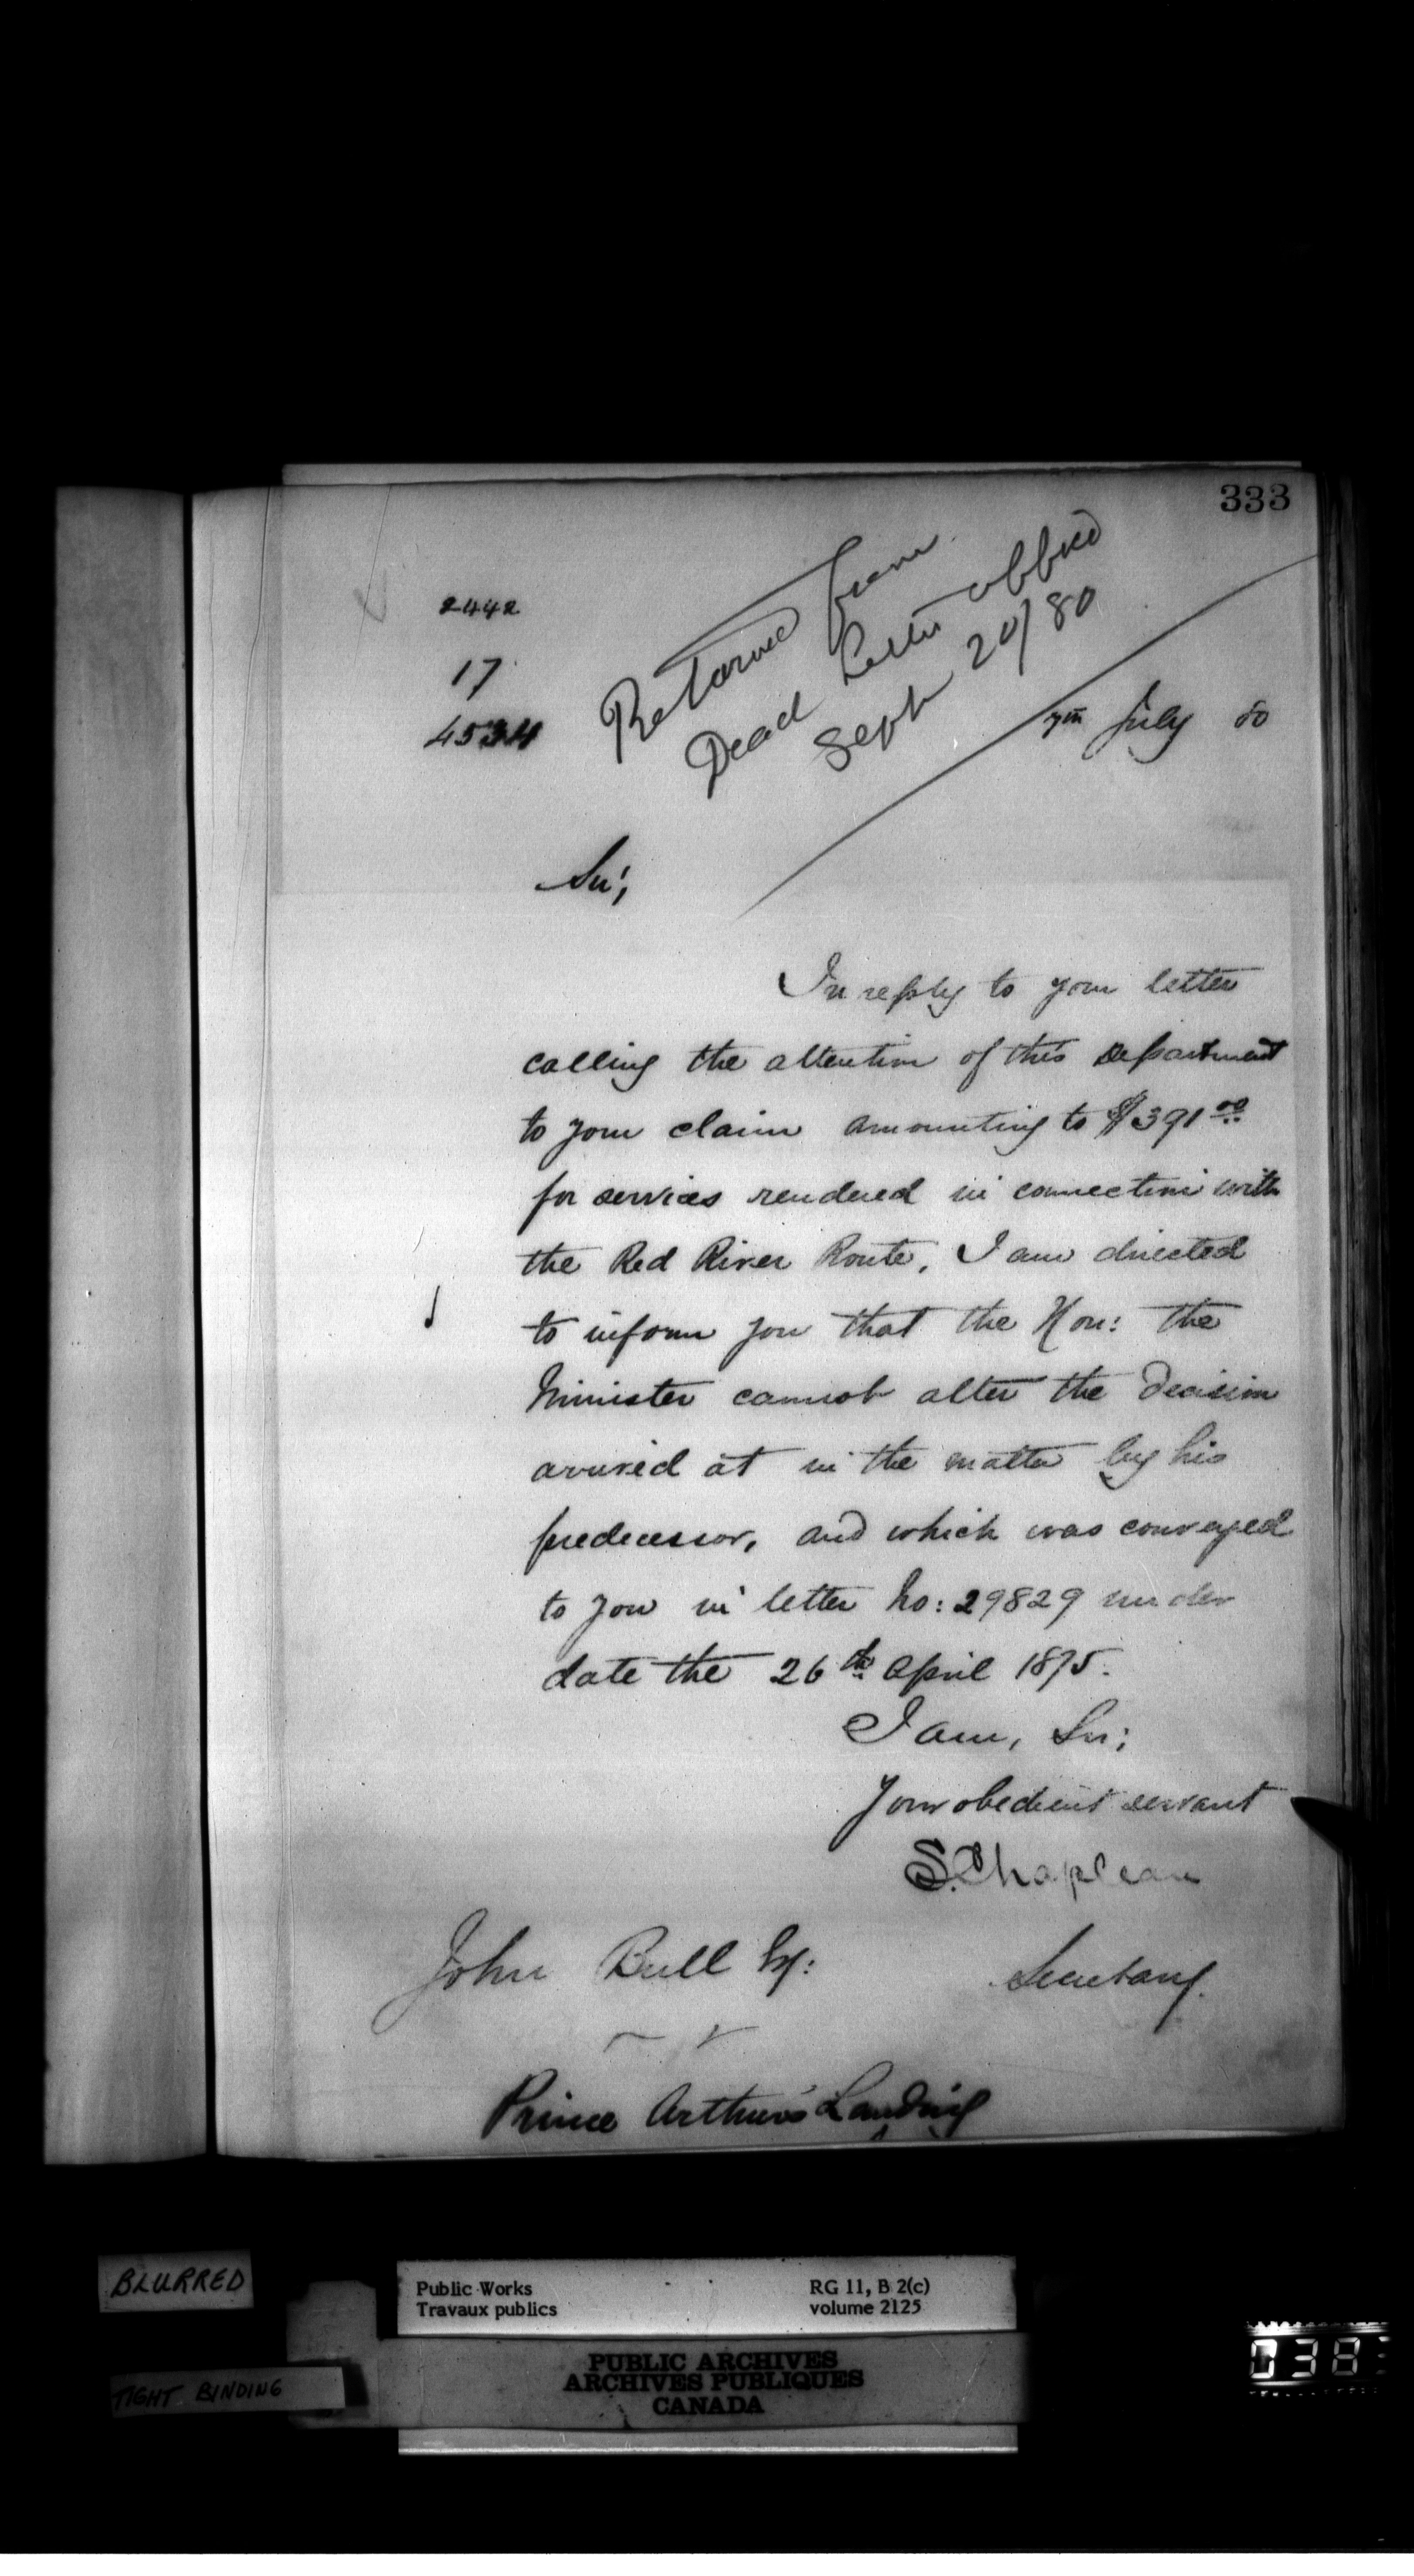 333
2442
17
4534
Returned from
Dead Letter Office
Sept 20/80
7th July 80
Sir,
In reply to your letter
calling the attention of this Department
to your claim amounting to $391.00
for services rendered in connection with
the Red River Route, I am directed
to inform you that the Hon: the
Minister cannot alter the decision
arrived at in the matter by his
predecessor, and which was conveyed
to you in letter No: 29829 under
date the 26th April 1875.
I am, Sir;
Your obedient servant
S. Chapleau
John Bull Esq:
Secretary.
Prince Arthur's Landing
BLURRED
Public Works
Travaux publics
RG 11, B 2(c)
volume 2125
TIGHT BINDING
PUBLIC ARCHIVES
ARCHIVES PUBLIQUES
CANADA
038